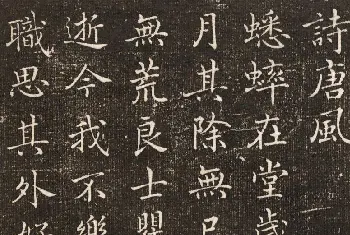 詩唐風
蟋蟀在堂歲
月其除無已
無荒良士瞿
逝今我不樂
職思其外好